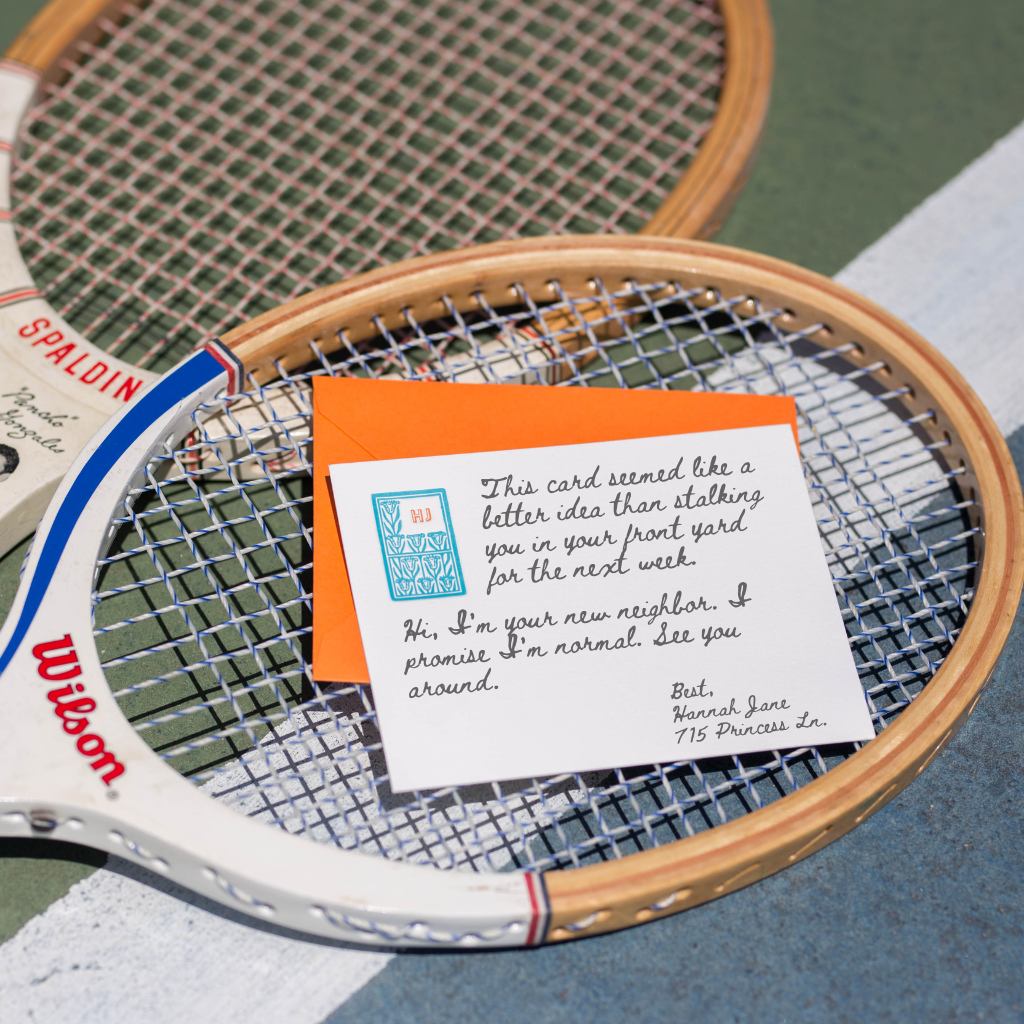 SPALDIN
"Pancho"
Gonzales
Wilson
HJ
This card seemed like a
better idea than stalking
you in your front yard
for the next week.
Hi, I'm your new neighbor. I
promise I'm normal. See you
around.
Best,
Hannah Jane
715 Princess Ln.